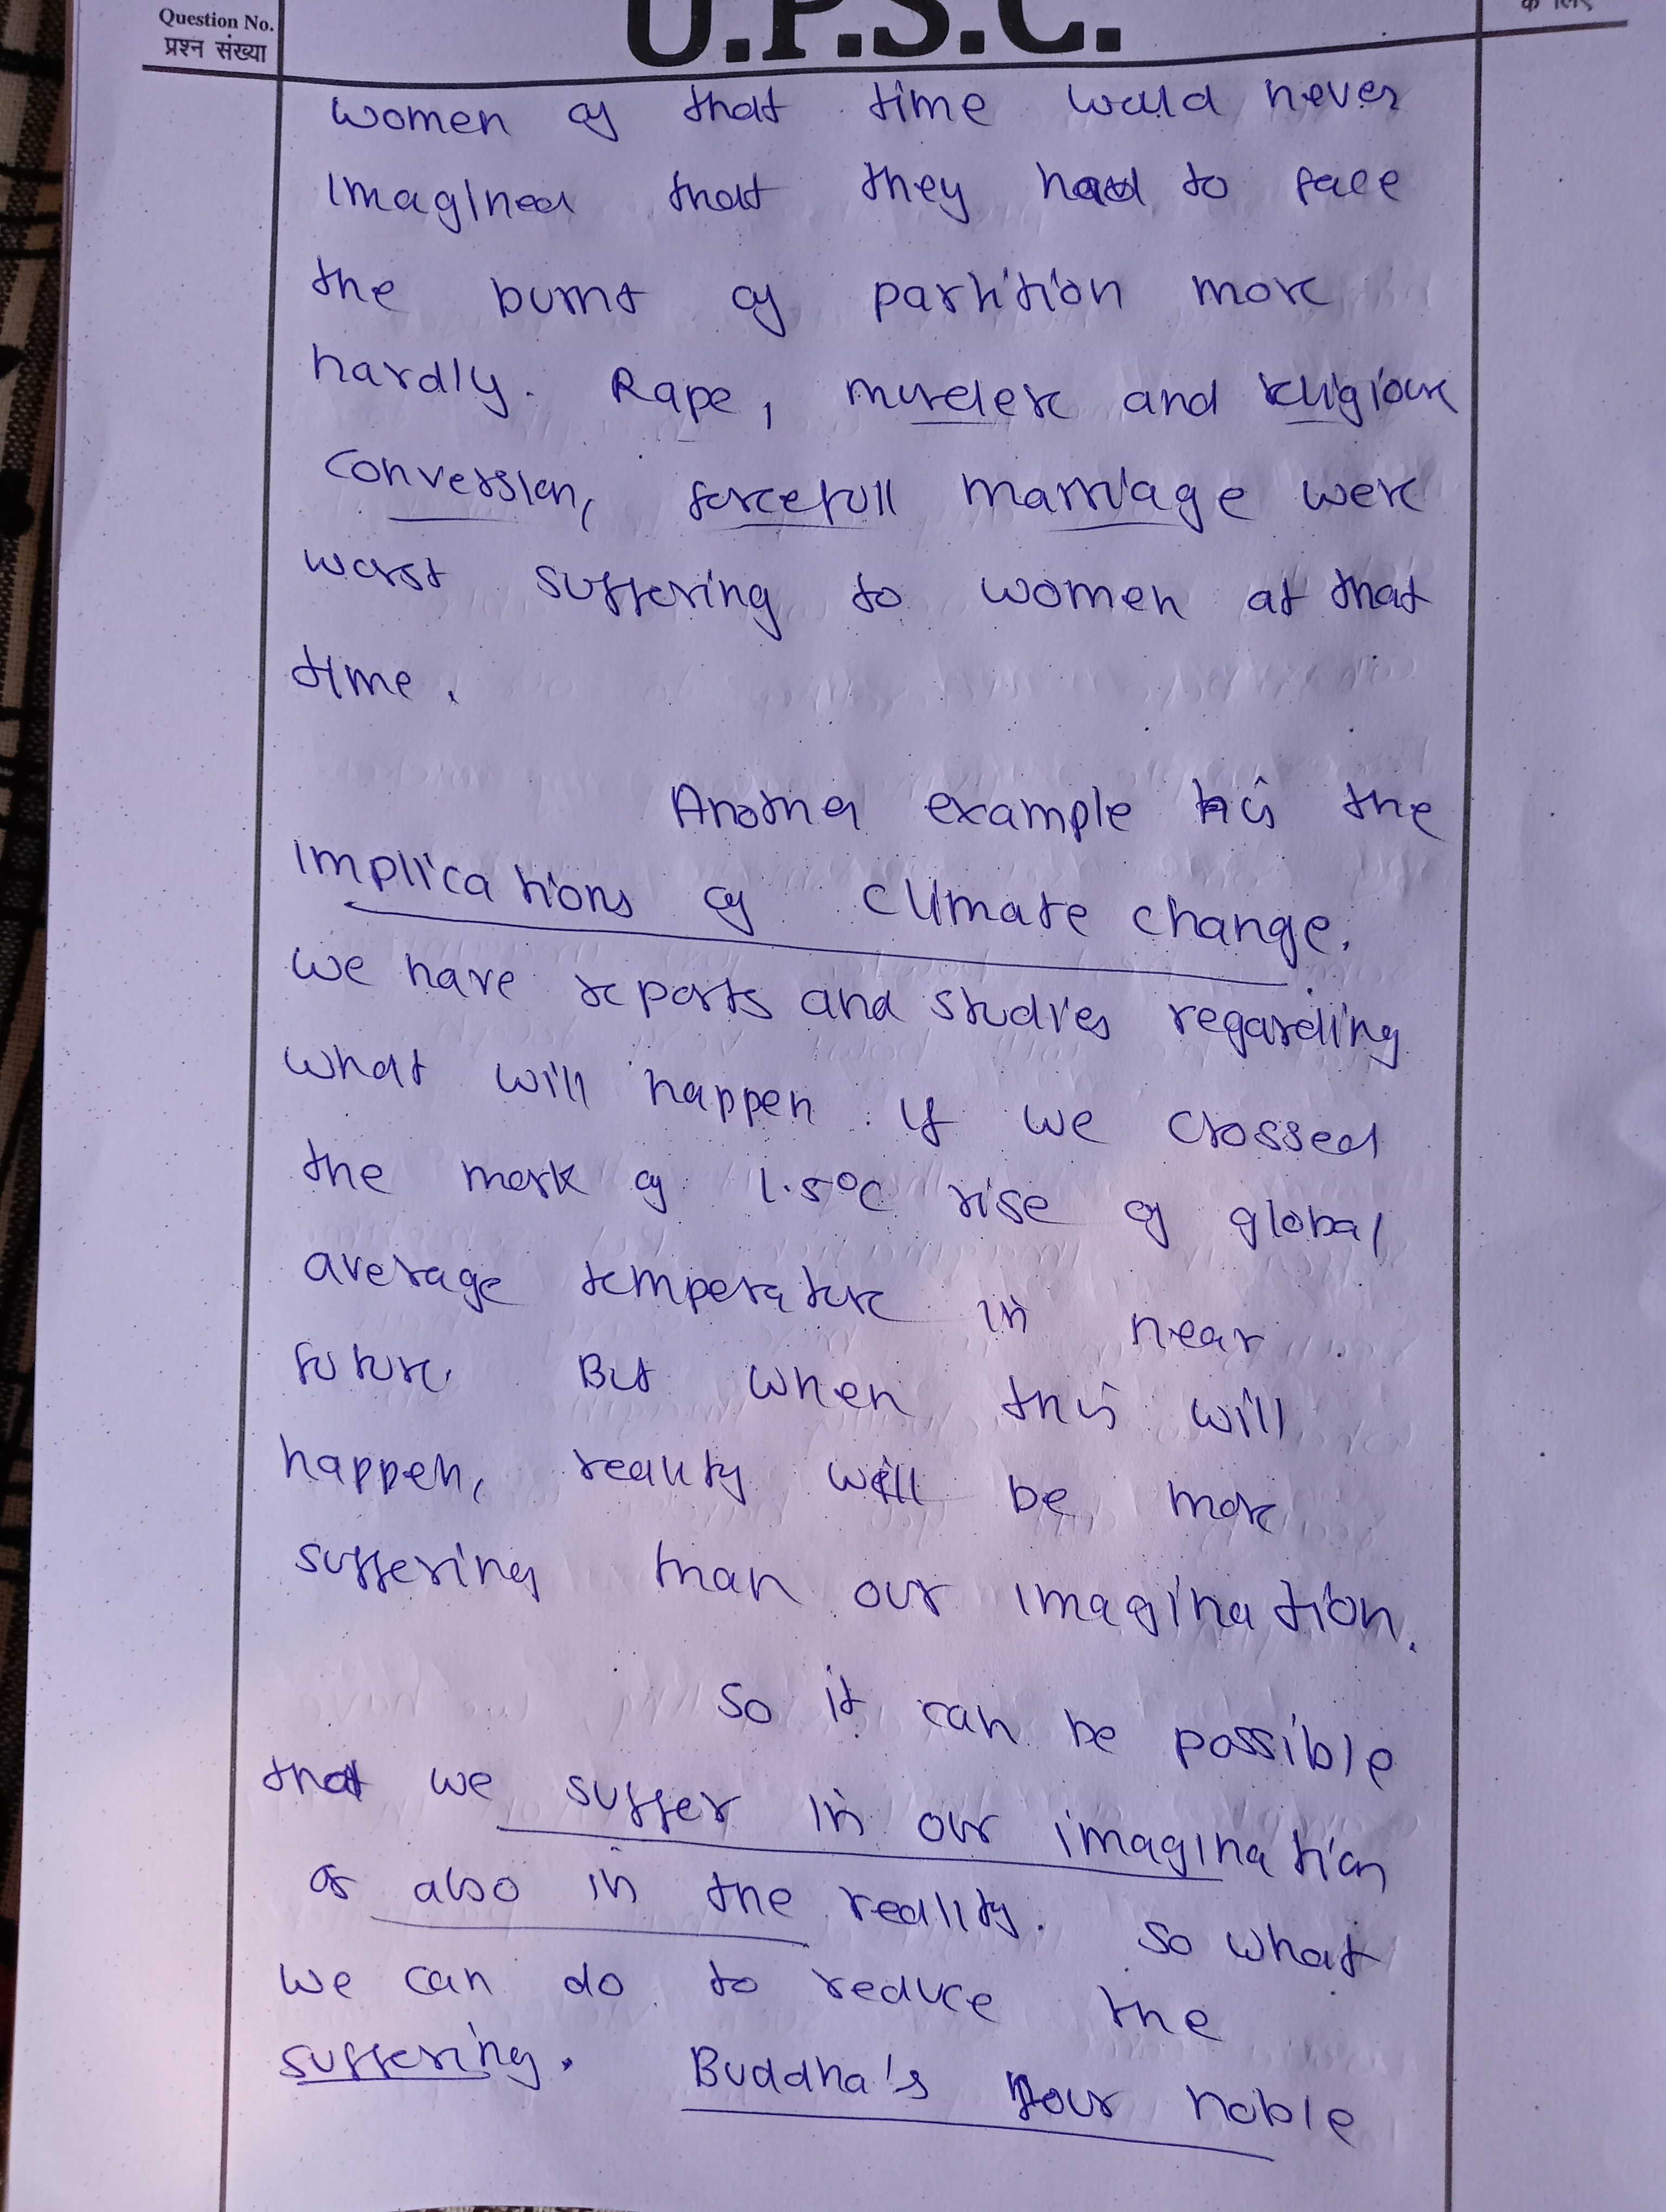 Question No.
प्रश्न संख्या
U.P.S.C.
के लिए
women of that time would never
imagined that they had to face
the burnt of partition more
hardly. Rape, murder and religious
conversion, forcefull marriage were
worst suffering to women at that
time.
Another example is the
implications of climate change.
we have reports and studies regarding
what will happen if we crossed
the mark of 1.5°C rise of global
average temperature in near
future. But when this will
happen, reality will be more
suffering than our imagination.
So it can be possible
that we suffer in our imagination
or also in the reality. So what
we can do to reduce the
suffering. Buddha's four noble